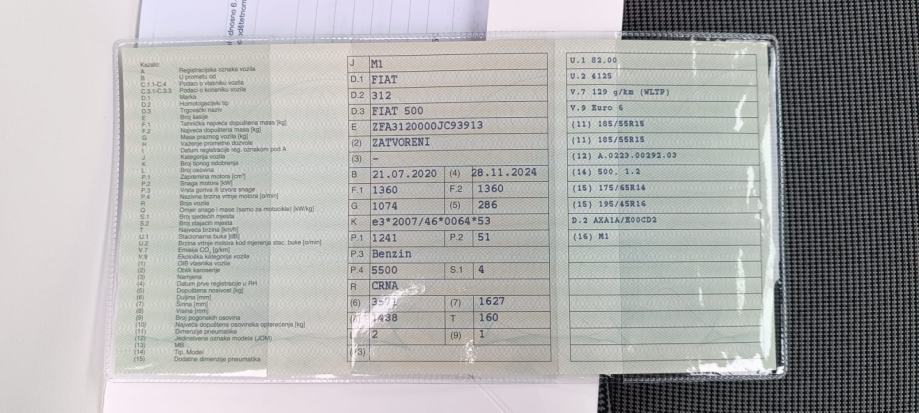 odnosno 6.
Kazalo:
A Registracijska oznaka vozila
B U prometu od
C.1.1-C.4 Podaci o vlasniku vozila
C.3.1-C.3.3 Podaci o korisniku vozila
D.1 Marka
D.2 Homologacijski tip
D.3 Trgovački naziv
E Broj šasije
F.1 Tehnička najveća dopuštena masa [kg]
F.2 Najveća dopuštena masa [kg]
G Masa praznog vozila [kg]
H Važenje prometne dozvole
I Datum registracije reg. oznakom pod A
J Kategorija vozila
K Broj tipnog odobrenja
L Broj osovina
P.1 Zapremina motora [cm³]
P.2 Snaga motora [kW]
P.3 Vrsta goriva ili izvora snage
P.4 Nazivna brzina vrtnje motora [o/min]
R Boja vozila
Q Omjer snage i mase (samo za motocikle) [kW/kg]
S.1 Broj sjedećih mjesta
S.2 Broj stajaćih mjesta
T Najveća brzina [km/h]
U.1 Stacionarna buka [dB]
U.2 Brzina vrtnje motora kod mjerenja stac. buke [o/min]
V.7 Emisija CO₂ [g/km]
V.9 Ekološka kategorija vozila
(1) OIB vlasnika vozila
(2) Oblik karoserije
(3) Namjena
(4) Datum prve registracije u RH
(5) Dopuštena nosivost [kg]
(6) Duljina [mm]
(7) Širina [mm]
(8) Visina [mm]
(9) Broj pogonskih osovina
(10) Najveće dopuštena osovinska opterećenja [kg]
(11) Dimenzije pneumatika
(12) Jedinstvena oznaka modela (JOM)
(13) MB
(14) Tip, Model
(15) Dodatne dimenzije pneumatika
J M1
D.1 FIAT
D.2 312
D.3 FIAT 500
E ZFA3120000JC93913
(2) ZATVORENI
(3) -
B 21.07.2020 (4) 28.11.2024
F.1 1360 F.2 1360
G 1074 (5) 286
K e3*2007/46*0064*53
P.1 1241 P.2 51
P.3 Benzin
P.4 5500 S.1 4
R CRNA
(6) (7) 1627
1488 T 160
2 (9) 1
U.1 82.00
U.2 4125
V.7 129 g/km (WLTP)
V.9 Euro 6
(11) 185/55R15
(11) 185/55R15
(12) A.0223.00292.03
(14) 500, 1.2
(15) 175/65R14
(15) 195/45R16
D.2 AXA1A/E00CD2
(16) M1